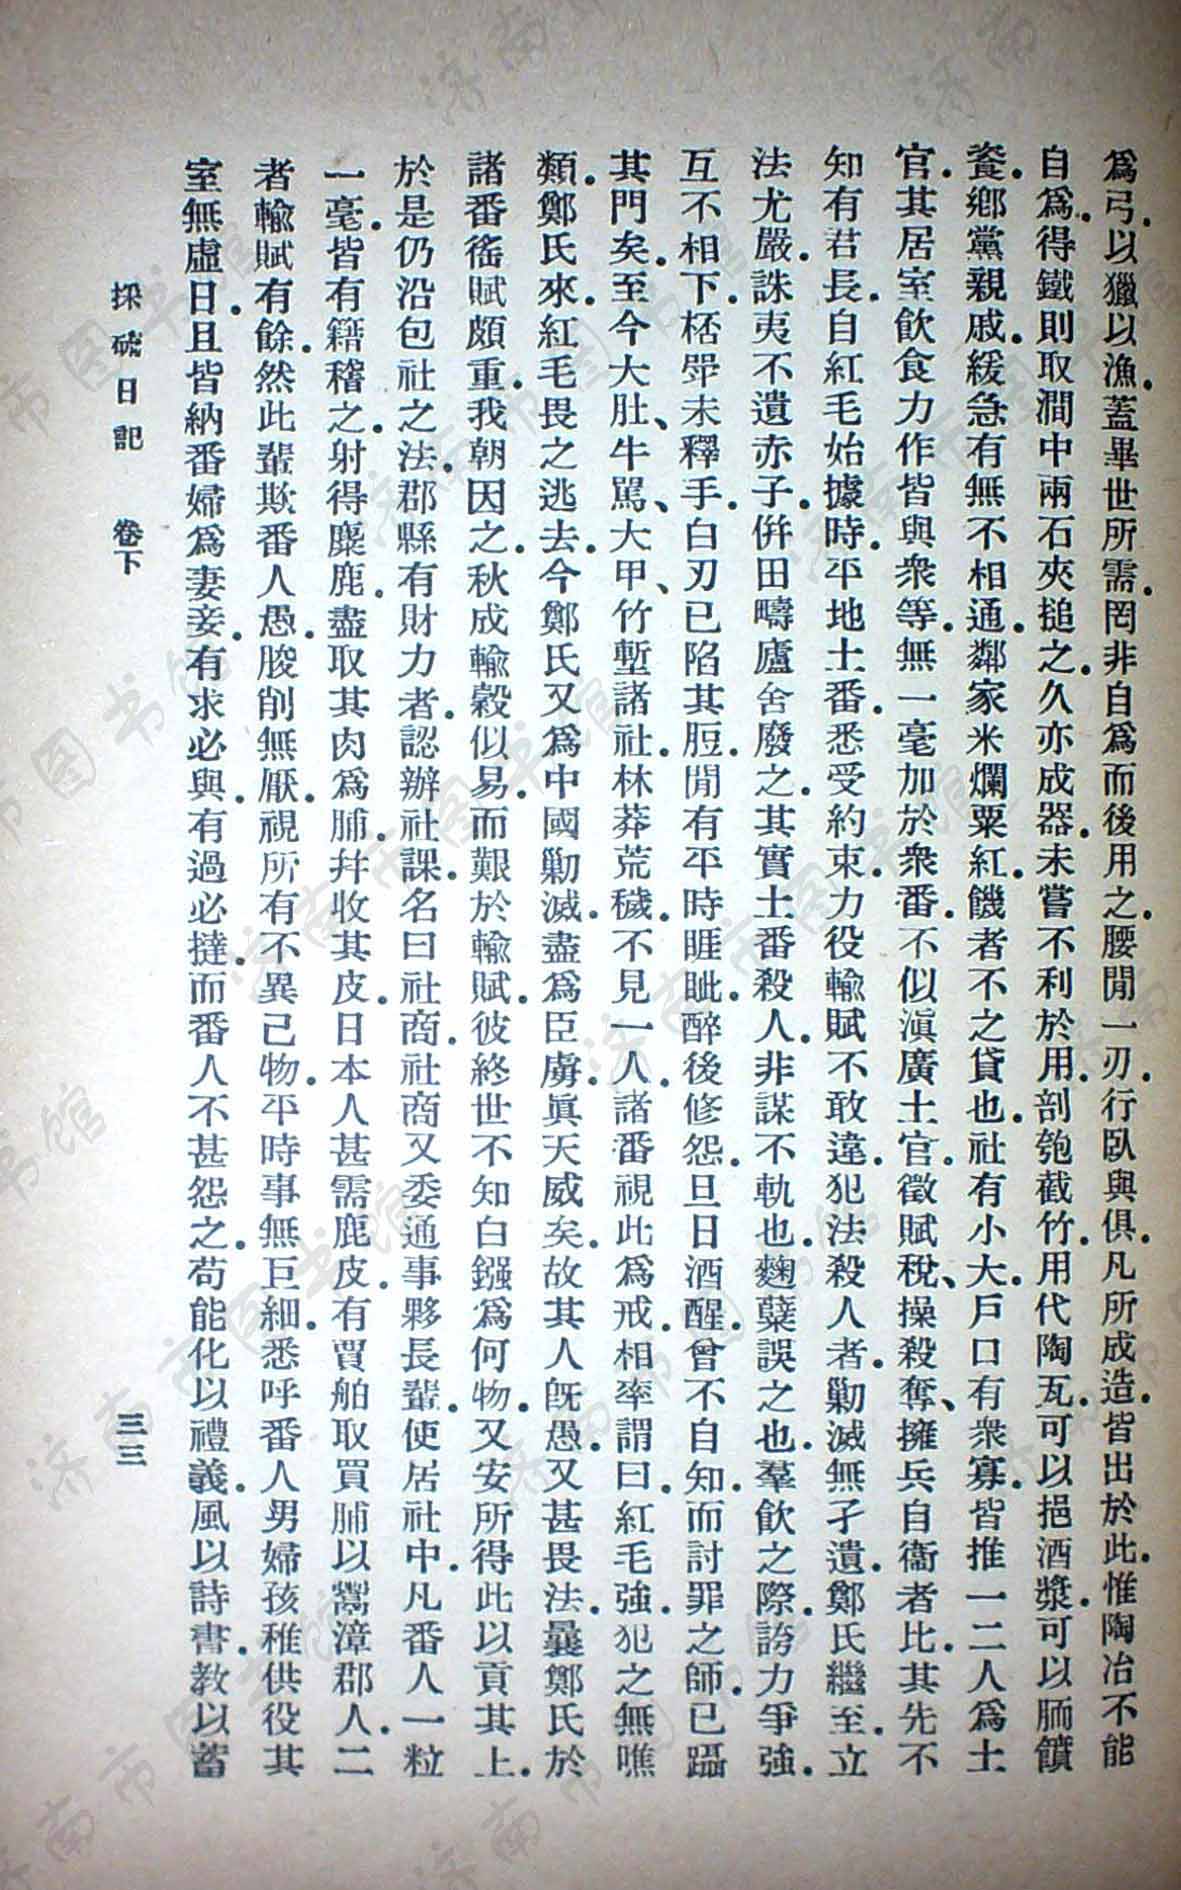 爲弓.以獵以漁.蓋畢世所需.罔非自爲而後用之.腰閒一刃.行臥與俱.凡所成造.皆出於此.惟陶冶不能
自爲.得鐵則取澗中兩石夾搥之.久亦成器.未嘗不利於用.剖匏截竹.用代陶瓦.可以挹酒漿.可以胹饙
餈.鄉黨親戚.緩急有無不相通.鄰家米爛粟紅.饑者不之貸也.社有小大.戶口有衆寡.皆推一二人爲土
官.其居室飲食力作.皆與衆等.無一毫加於衆番.不似滇廣土官.徵賦稅、操殺奪、擁兵自衞者比.其先不
知有君長.自紅毛始據時.平地土番.悉受約束.力役輸賦不敢違.犯法殺人者.勦滅無孑遺.鄭氏繼至.立
法尤嚴.誅夷不遺赤子.併田疇廬舍廢之.其實土番殺人.非謀不軌也.麴蘗誤之也.羣飲之際.誇力爭強.
互不相下.桮斝未釋手.白刃已陷其脰.閒有平時睚眦.醉後修怨.旦日酒醒.曾不自知.而討罪之師.已躡
其門矣.至今大肚、牛罵、大甲、竹塹諸社.林莽荒穢.不見一人.諸番視此爲戒.相率謂曰.紅毛強.犯之無噍
類.鄭氏來.紅毛畏之逃去.今鄭氏又爲中國勦滅.盡爲臣虜.眞天威矣.故其人旣愚.又甚畏法.曩鄭氏於
諸番徭賦頗重.我朝因之.秋成輸穀似易.而艱於輸賦.彼終世不知白鏹爲何物.又安所得此以貢其上.
於是仍沿包社之法.郡縣有財力者.認辦社課.名曰社商.社商又委通事夥長輩.使居社中.凡番人一粒
一毫.皆有籍稽之.射得麋鹿.盡取其肉爲脯.幷收其皮.日本人甚需鹿皮.有賈舶取買.脯以鬻漳郡人.二
者輸賦有餘.然此輩欺番人愚.朘削無厭.視所有不異己物.平時事無巨細.悉呼番人男婦孩稚供役其
室無虛日.且皆納番婦爲妻妾.有求必與.有過必撻.而番人不甚怨之.苟能化以禮義.風以詩書.敎以蓄
採硫日記 卷下 三三
济南市图书馆